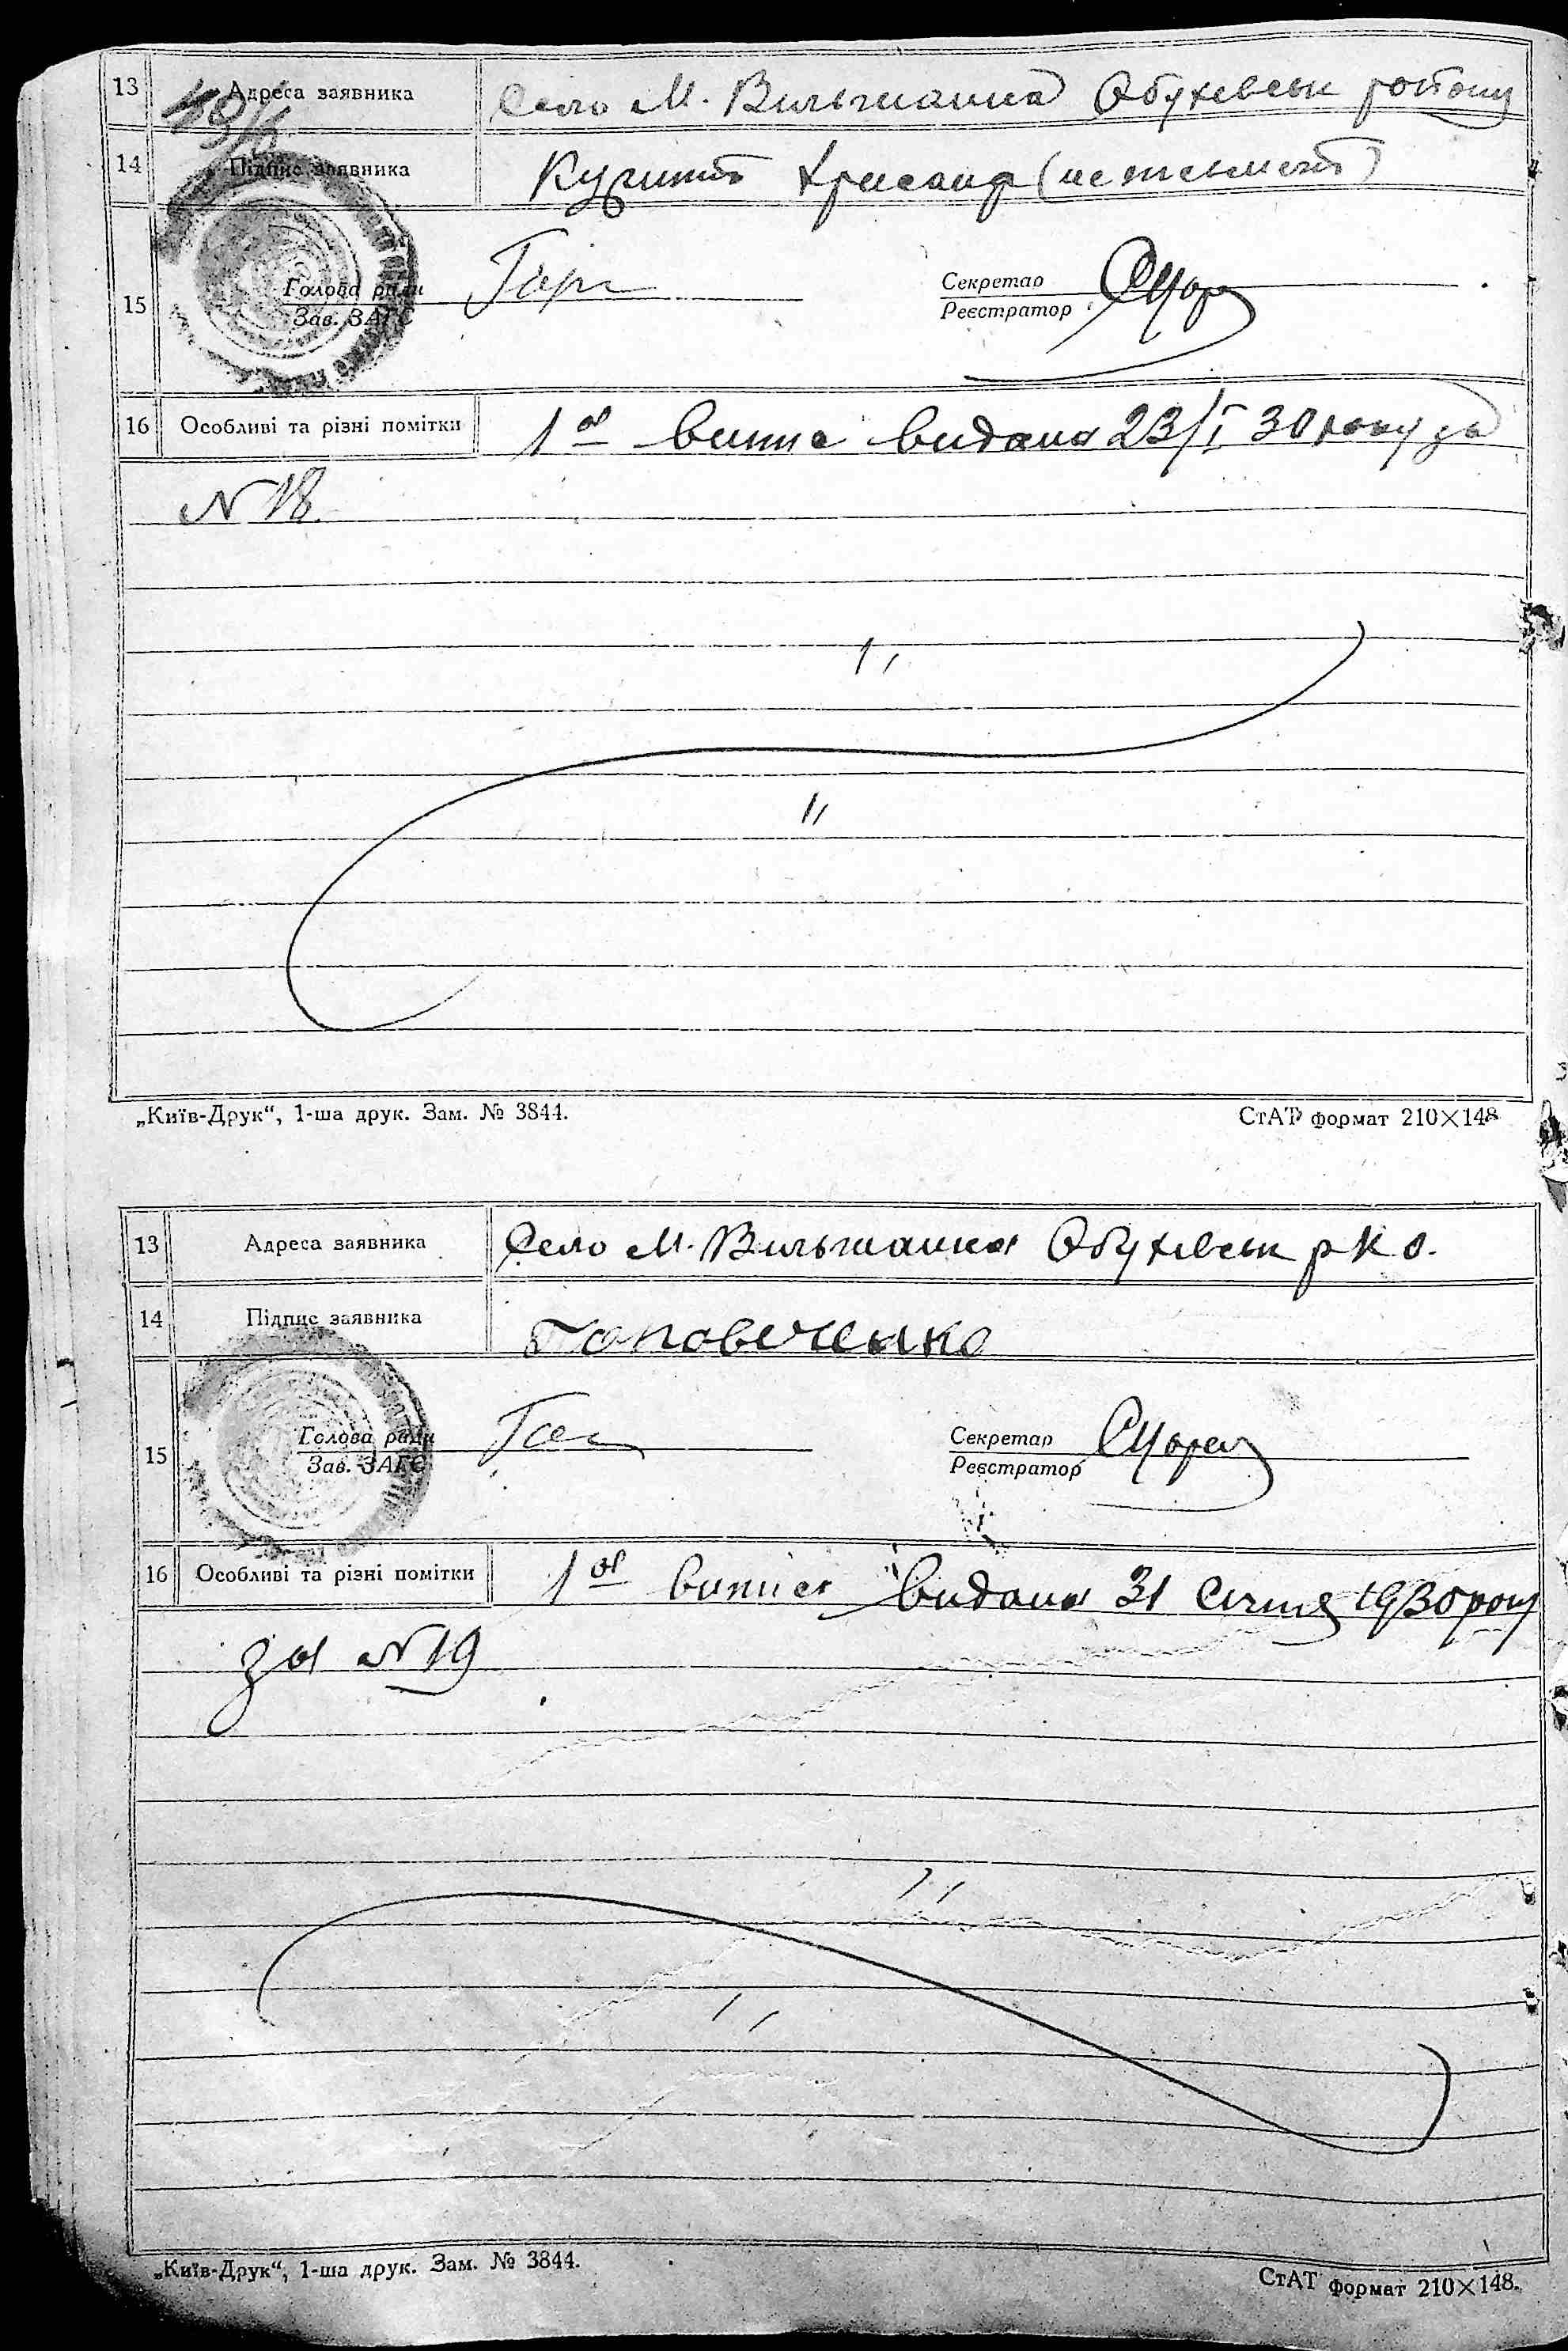 13 Адреса заявника Село М. Вильшанка Обухевськ району
14 Підпис заявника Хрисанф (неписьмен)
15 Голова ради Секретар
Зав. ЗАГС Реєстратор
16 Особливі та різні помітки 1а випис видана 23/I 30 року за
N 18.
„Київ-Друк“, 1-ша друк. Зам. № 3844. СтАТ формат 210×148
13 Адреса заявника Село М. Вильшанка Обухевськ р к о.
14 Підпис заявника Поповиченко
15 Голова ради Секретар
Зав. ЗАГС Реєстратор
16 Особливі та різні помітки 1а видана 31 Січня 1930 року
за N 19
„Київ-Друк“, 1-ша друк. Зам. № 3844. СтАТ формат 210×148.